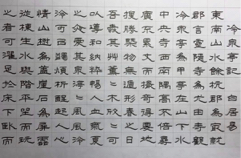 冷泉亭記 白居易
東南山水餘杭郡為最就
郡言靈隱寺為尤由寺觀
冷泉亭為甲亭在山下水
中央寺西南隅高不倍尋
廣不累丈而撮奇得要地
搜勝概物無遁形春之日
吾愛其草薰薰木欣欣可
以導和納粹暢人血氣夏
之夜吾愛其泉渟渟風泠
泠可以蠲煩析酲起人心
情山樹為蓋岩石為屏雲
從棟生水與階平坐而玩
之者可濯足於床下臥而